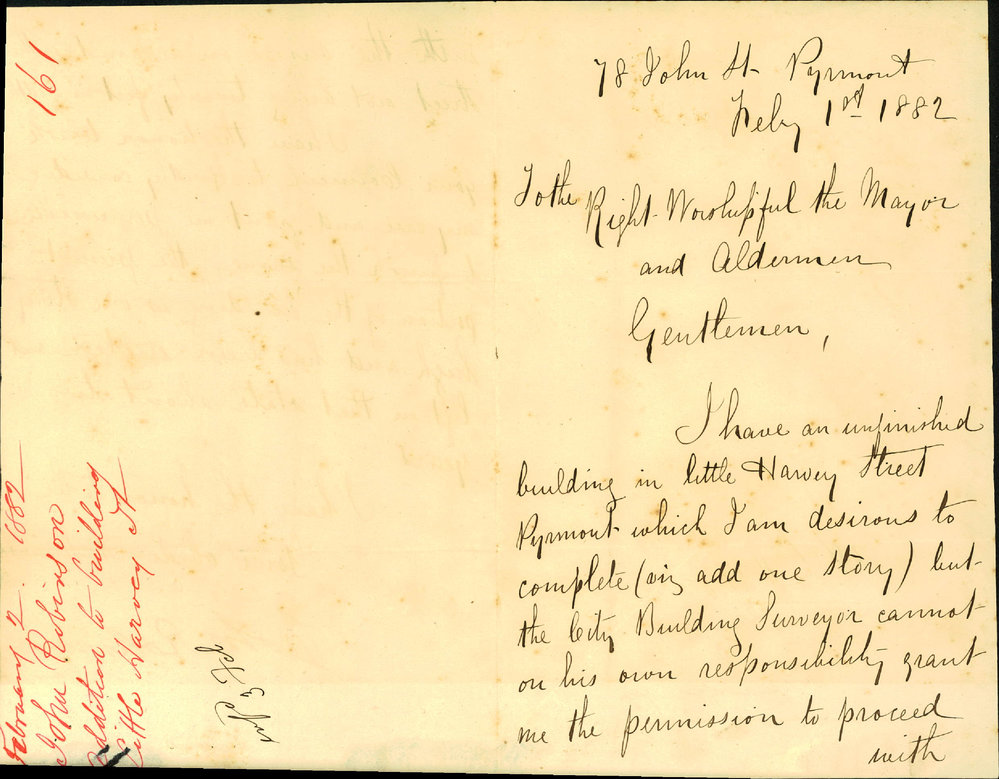 161
February 2 1882
John Robinson
Addition to building
Little Harvey St
78 John St Pyrmont
Feby 1st 1882
To the Right Worshipful the Mayor
and Aldermen
Gentlemen,
I have an unfinished
building in little Harvey Street
Pyrmont which I am desirous to
complete (viz add one story) but
the City Building Surveyor cannot
on his own responsibility grant
me the permission to proceed
with